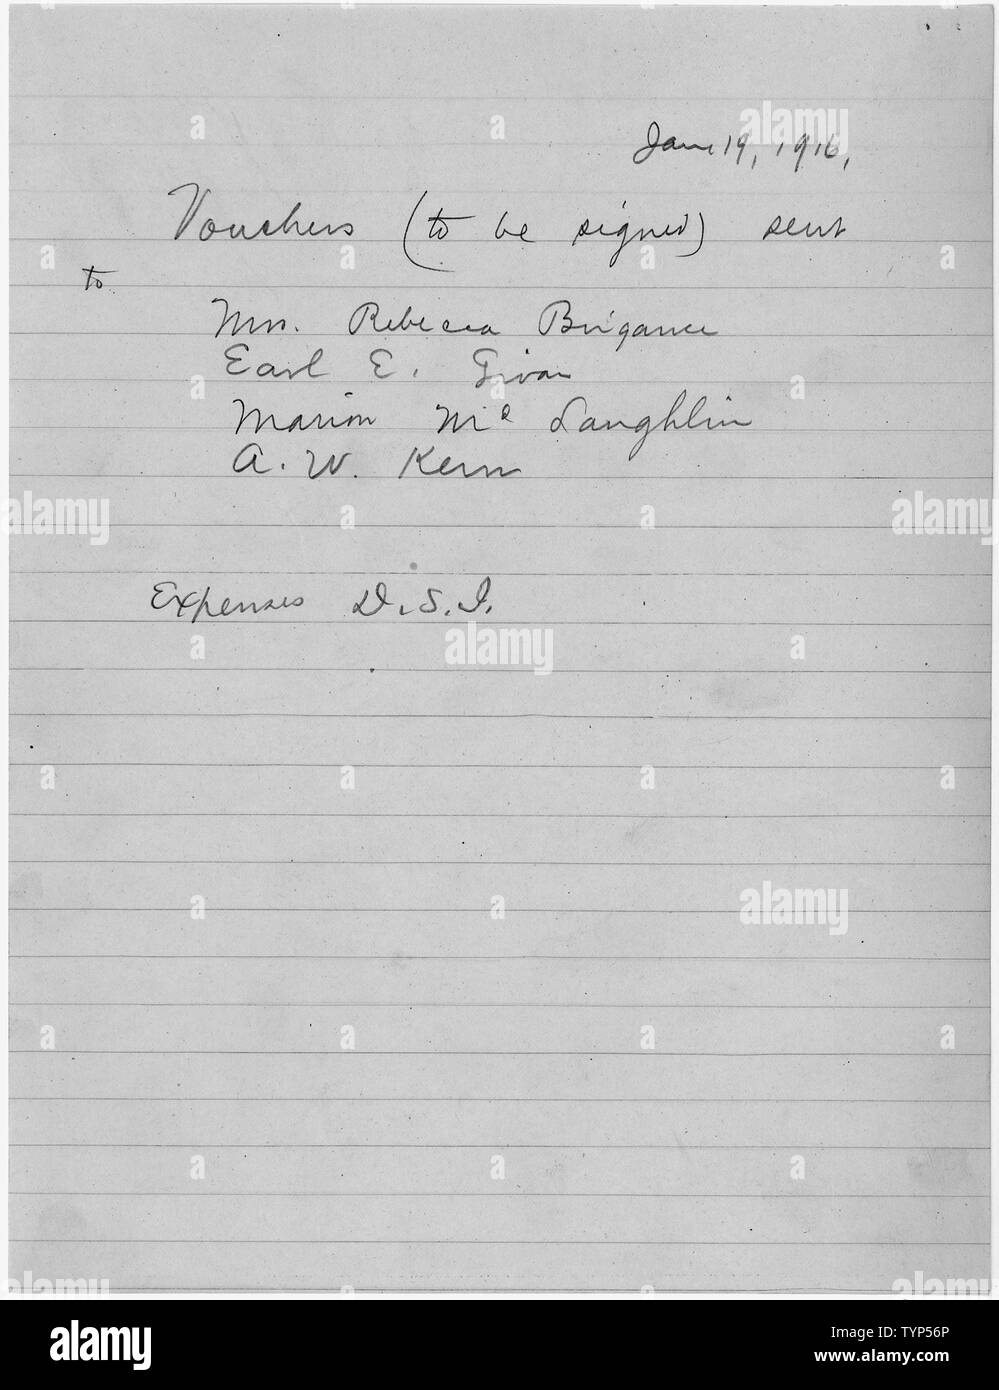 Jan. 19, 1916.
Vouchers (to be signed) sent
to
Mrs. Rebecca Brigance
Earl E. Givan
Marion Mc Laughlin
A. W. Kern
Expenses D.S.I.
alamy
Image ID: TYP56P
www.alamy.com